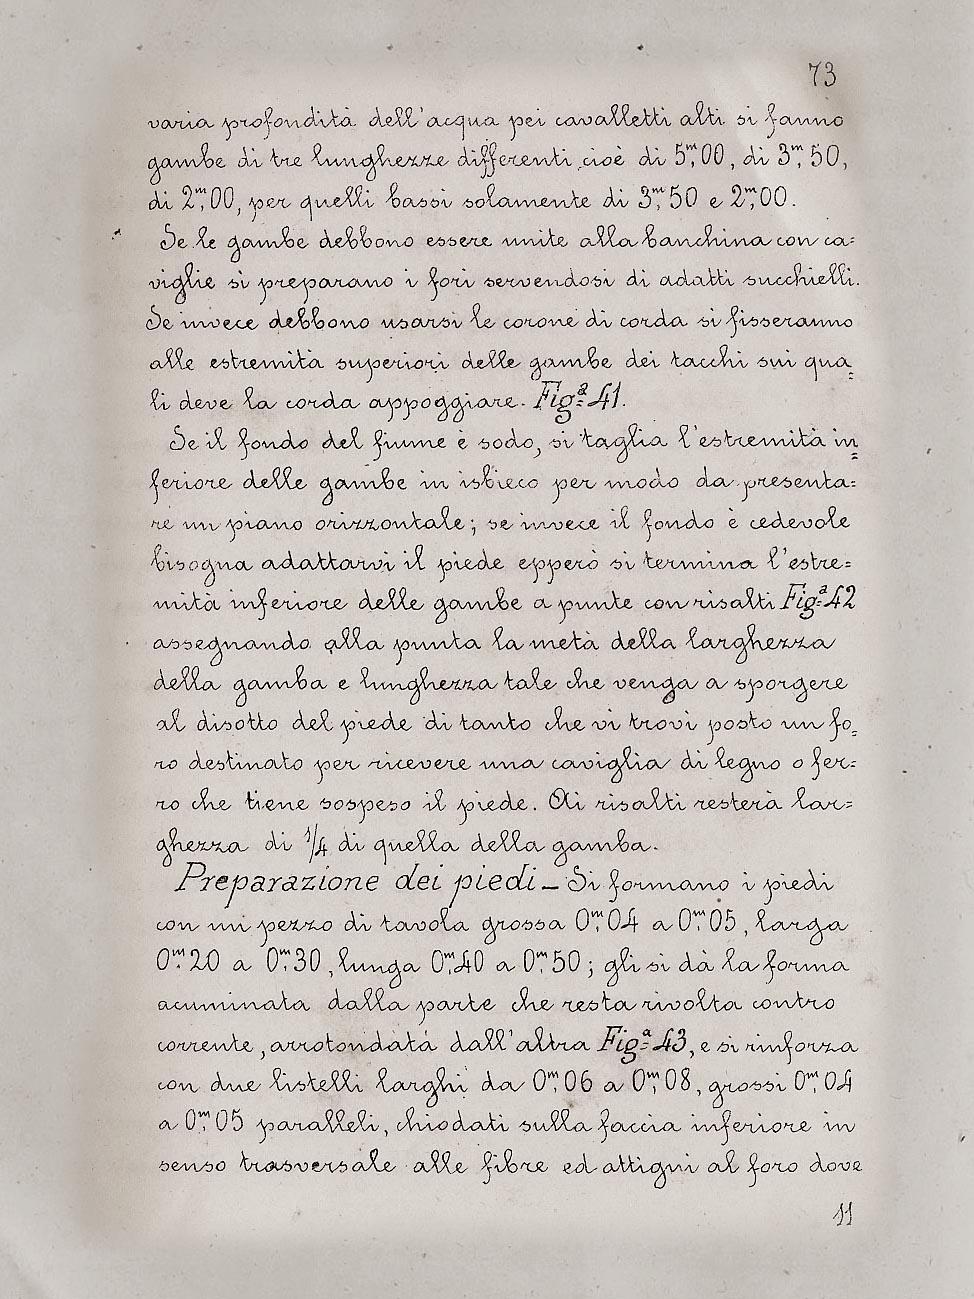 73
varia profondità dell'acqua pei cavalletti alti si fanno
gambe di tre lunghezze differenti cioè di 5,ᵐ00, di 3,ᵐ50,
di 2,ᵐ00, per quelli bassi solamente di 3,ᵐ50 e 2,ᵐ00.
Se le gambe debbono essere unite alla banchina con ca=
viglie si preparano i fori servendosi di adatti succhielli.
Se invece debbono usarsi le corone di corda si fisseranno
alle estremità superiori delle gambe dei tacchi sui qua=
li deve la corda appoggiare. Figᵃ= 41.
Se il fondo del fiume è sodo, si taglia l'estremità in=
feriore delle gambe in isbieco per modo da presenta=
re un piano orizzontale; se invece il fondo è cedevole
bisogna adattarvi il piede epperò si termina l'estre=
mità inferiore delle gambe a punte con risalti Figᵃ= 42
assegnando alla punta la metà della larghezza
della gamba e lunghezza tale che venga a sporgere
al disotto del piede di tanto che vi trovi posto un fo=
ro destinato per ricevere una caviglia di legno o fer=
ro che tiene sospeso il piede. Ai risalti resterà lar=
ghezza di 1/4 di quella della gamba.
Preparazione dei piedi - Si formano i piedi
con un pezzo di tavola grossa 0,ᵐ04 a 0,ᵐ05, larga
0,ᵐ20 a 0,ᵐ30, lunga 0,ᵐ40 a 0,ᵐ50; gli si dà la forma
acuminata dalla parte che resta rivolta contro
corrente, arrotondata dall'altra Figᵃ= 43, e si rinforza
con due listelli larghi da 0,ᵐ06 a 0,ᵐ08, grossi 0,ᵐ04
a 0,ᵐ05 paralleli, chiodati sulla faccia inferiore in
senso trasversale alle fibre ed attigni al foro dove
11